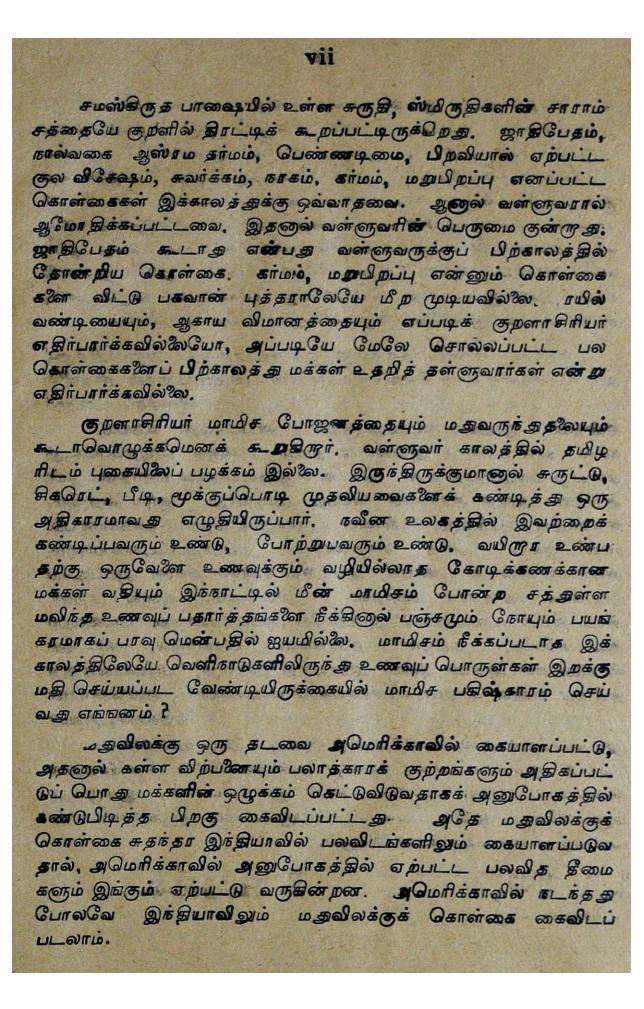 vii
சமஸ்கிருத பாஷையில் உள்ள சுருதி, ஸ்மிருதிகளின் சாராம்
சத்தையே குறளில் திரட்டிக் கூறப்பட்டிருக்கிறது. ஜாதிபேதம்,
நால்வகை ஆஸ்ரம தர்மம், பெண்ணடிமை, பிறவியால் ஏற்பட்ட
குல விசேஷம், சுவர்க்கம், நரகம், கர்மம், மறுபிறப்பு எனப்பட்ட
கொள்கைகள் இக்காலத்துக்கு ஒவ்வாதவை. ஆனால் வள்ளுவரால்
ஆமோதிக்கப்பட்டவை. இதனால் வள்ளுவரின் பெருமை குன்றாது.
ஜாதிபேதம் கூடாது என்பது வள்ளுவருக்குப் பிற்காலத்தில்
தோன்றிய கொள்கை. கர்மம், மறுபிறப்பு என்னும் கொள்கை
களை விட்டு பகவான் புத்தராலேயே மீற முடியவில்லை. ரயில்
வண்டியையும், ஆகாய விமானத்தையும் எப்படிக் குறளாசிரியர்
எதிர்பார்க்கவில்லையோ, அப்படியே மேலே சொல்லப்பட்ட பல
கொள்கைகளைப் பிற்காலத்து மக்கள் உதறித் தள்ளுவார்கள் என்று
எதிர்பார்க்கவில்லை.
குறளாசிரியர் மாமிச போஜனத்தையும் மதுவருந்துதலையும்
கூடாவொழுக்கமெனக் கூறுகிறார். வள்ளுவர் காலத்தில் தமிழ
ரிடம் புகையிலைப் பழக்கம் இல்லை. இருந்திருக்குமானால் சுருட்டு,
சிகரெட், பீடி, மூக்குப்பொடி முதலியவைகளைக் கண்டித்து ஒரு
அதிகாரமாவது எழுதியிருப்பார். நவீன உலகத்தில் இவற்றைக்
கண்டிப்பவரும் உண்டு, போற்றுபவரும் உண்டு. வயிறார உண்ப
தற்கு ஒருவேளை உணவுக்கும் வழியில்லாத கோடிக்கணக்கான
மக்கள் வதியும் இந்நாட்டில் மீன் மாமிசம் போன்ற சத்துள்ள
மலிந்த உணவுப் பதார்த்தங்களை நீக்கினால் பஞ்சமும் நோயும் பயங்
கரமாகப் பரவு மென்பதில் ஐயமில்லை. மாமிசம் நீக்கப்படாத இக்
காலத்திலேயே வெளிநாடுகளிலிருந்து உணவுப் பொருள்கள் இறக்கு
மதி செய்யப்பட வேண்டியிருக்கையில் மாமிச பகிஷ்காரம் செய்
வது எங்ஙனம் ?
மதுவிலக்கு ஒரு தடவை அமெரிக்காவில் கையாளப்பட்டு,
அதனால் கள்ள விற்பனையும் பலாத்காரக் குற்றங்களும் அதிகப்பட்
டுப் பொது மக்களின் ஒழுக்கம் கெட்டுவிடுவதாகக் அனுபோகத்தில்
கண்டுபிடித்த பிறகு கைவிடப்பட்டது. அதே மதுவிலக்குக்
கொள்கை சுதந்தர இந்தியாவில் பலவிடங்களிலும் கையாளப்படுவ
தால், அமெரிக்காவில் அனுபோகத்தில் ஏற்பட்ட பலவித தீமை
களும் இங்கும் ஏற்பட்டு வருகின்றன. அமெரிக்காவில் நடந்தது
போலவே இந்தியாவிலும் மதுவிலக்குக் கொள்கை கைவிடப்
படலாம்.